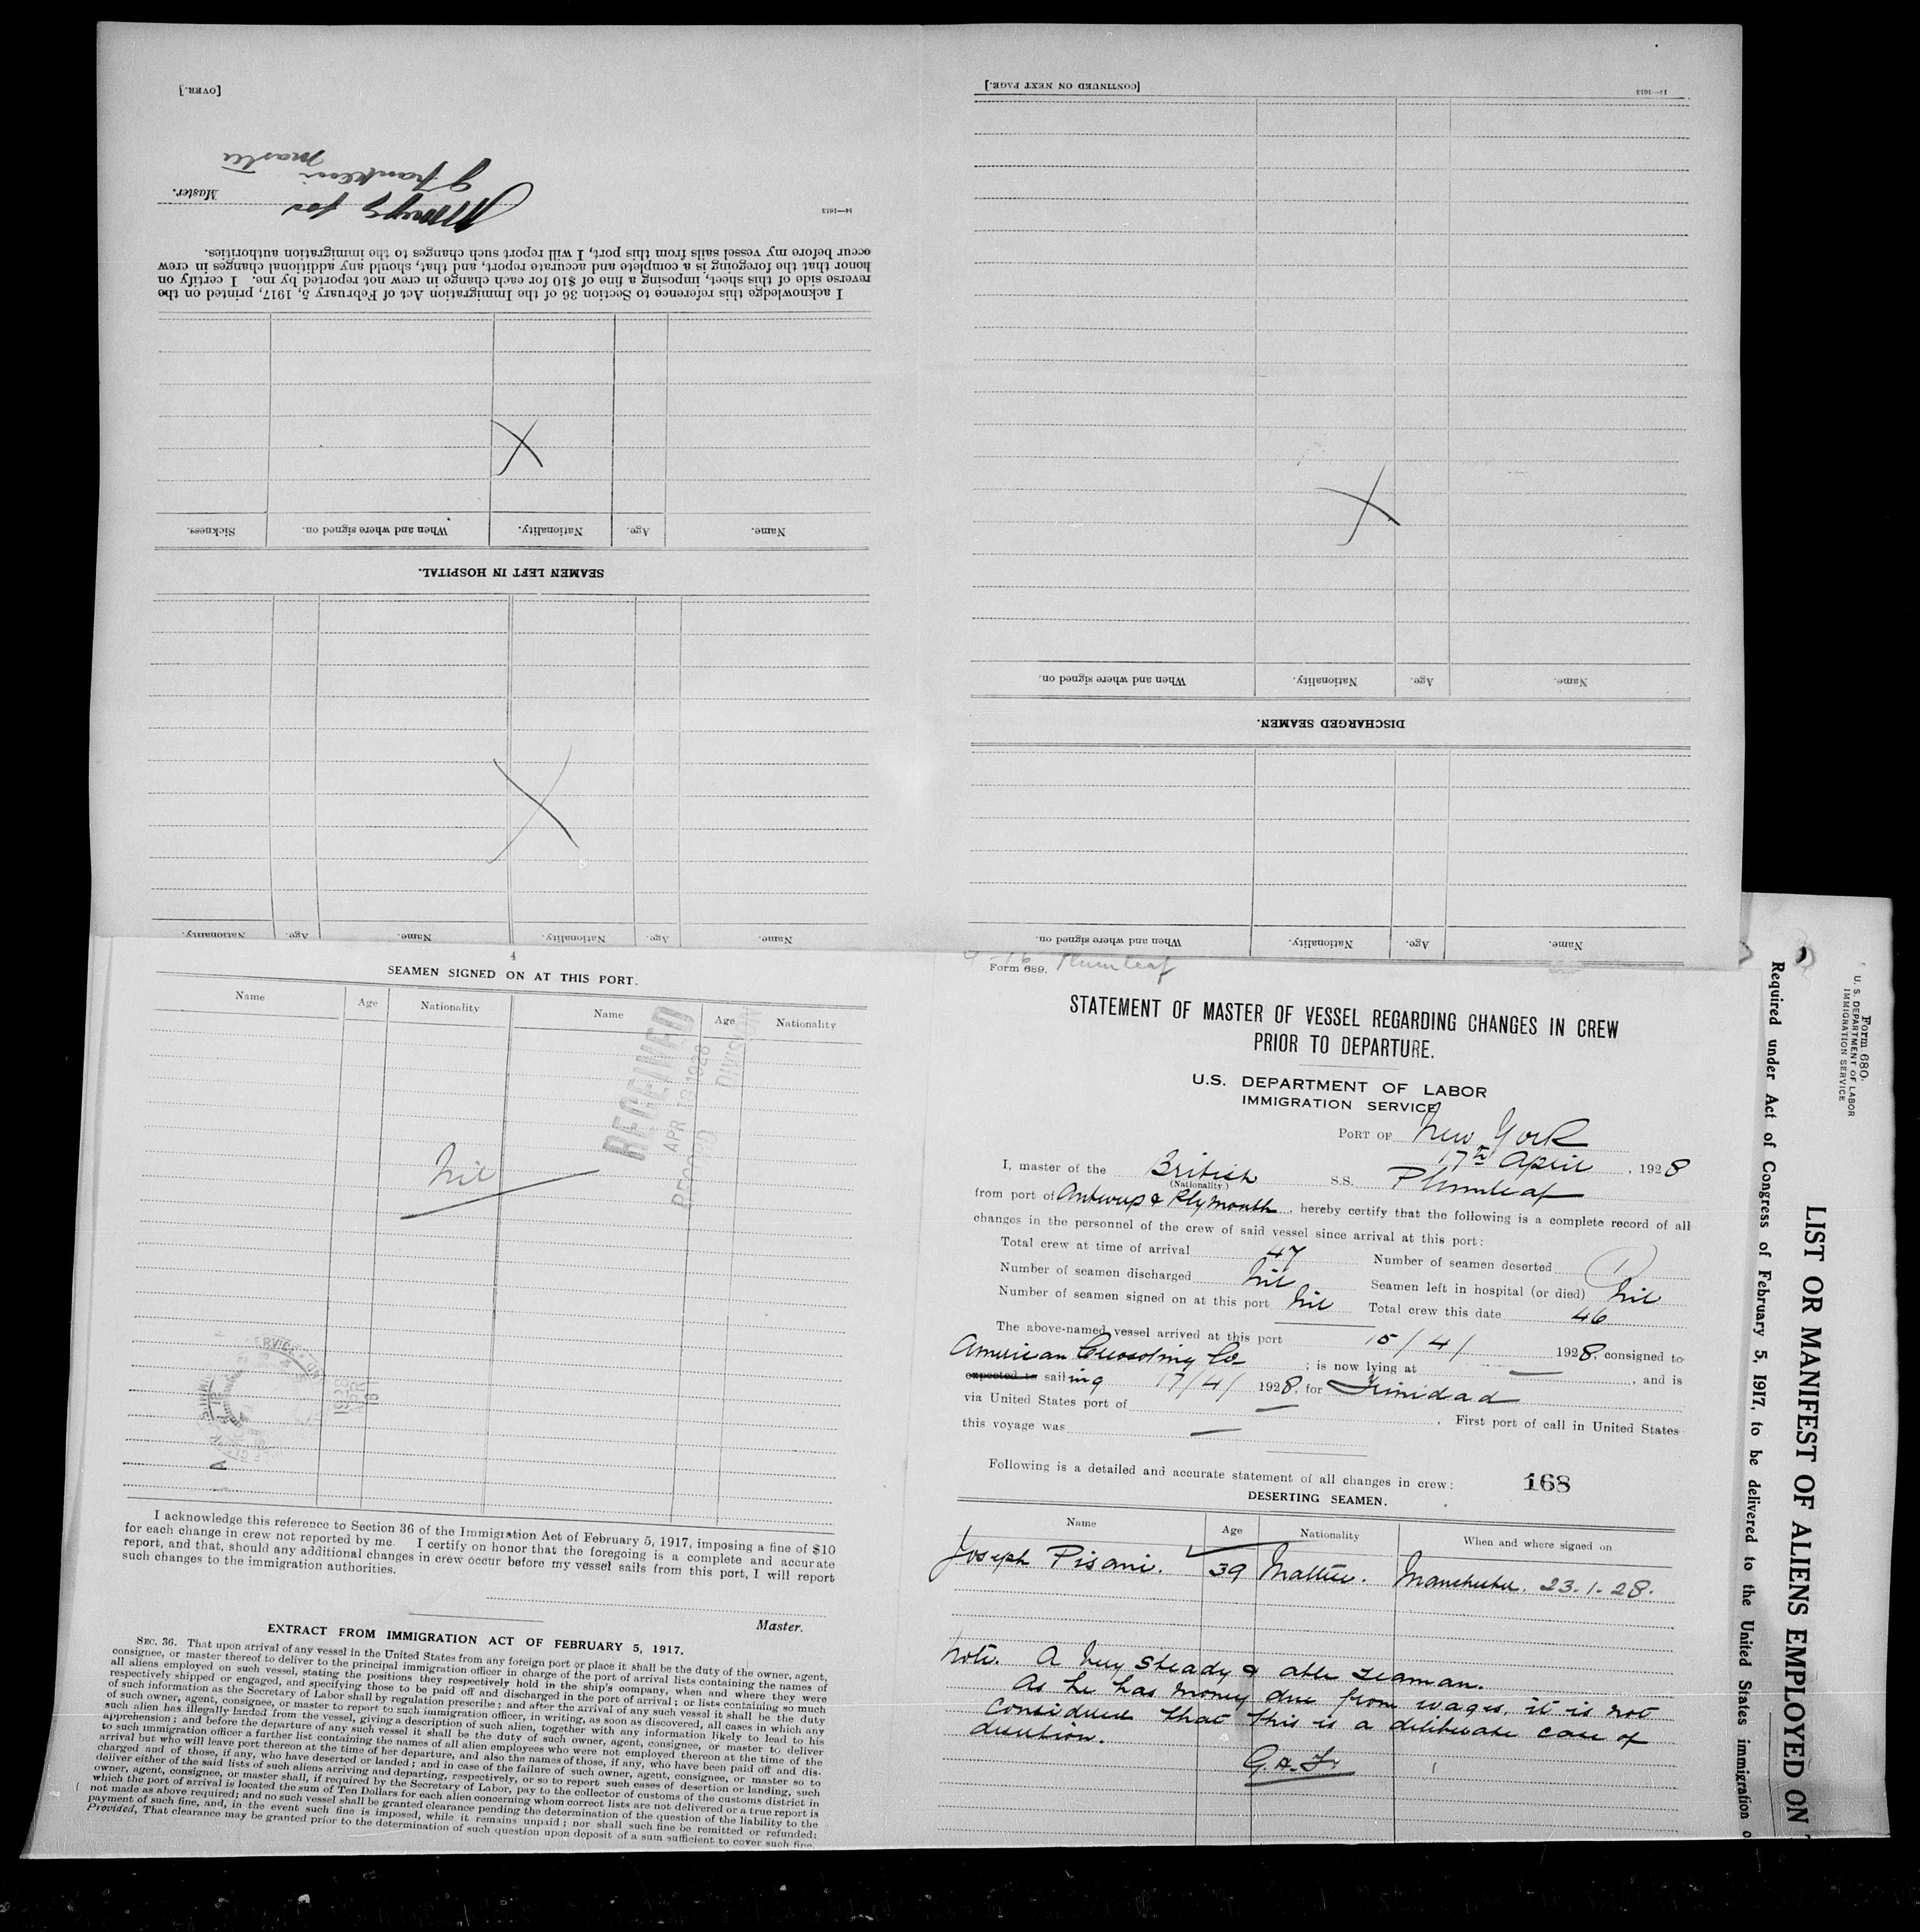 [OVER.]
Master.
for
J Franklin
master
14—1613
I acknowledge this reference to Section 36 of the Immigration Act of February 5, 1917, printed on the
reverse side of this sheet, imposing a fine of $10 for each change in crew not reported by me. I certify on
honor that the foregoing is a complete and accurate report, and that, should any additional changes in crew
occur before my vessel sails from this port, I will report such changes to the immigration authorities.
SEAMEN LEFT IN HOSPITAL.
Name. Age. Nationality. When and where signed on. Sickness.
Name. Age. Nationality. Name. Age. Nationality.
[CONTINUED ON NEXT PAGE.]
14—1613
DISCHARGED SEAMEN.
Name. Age. Nationality. When and where signed on.
Name. Age. Nationality. When and where signed on.
4
SEAMEN SIGNED ON AT THIS PORT.
Name Age Nationality Name Age Nationality
RECEIVED
APR 18 1928
RECORD DIVISION
Nil
1928
APR
18
I acknowledge this reference to Section 36 of the Immigration Act of February 5, 1917, imposing a fine of $10
for each change in crew not reported by me. I certify on honor that the foregoing is a complete and accurate
report, and that, should any additional changes in crew occur before my vessel sails from this port, I will report
such changes to the immigration authorities.
Master.
EXTRACT FROM IMMIGRATION ACT OF FEBRUARY 5, 1917.
SEC. 36. That upon arrival of any vessel in the United States from any foreign port or place it shall be the duty of the owner, agent,
consignee, or master thereof to deliver to the principal immigration officer in charge of the port of arrival lists containing the names of
all aliens employed on such vessel, stating the positions they respectively hold in the ship's company, when and where they were
respectively shipped or engaged, and specifying those to be paid off and discharged in the port of arrival; or lists containing so much
of such information as the Secretary of Labor shall by regulation prescribe; and after the arrival of any such vessel it shall be the duty
of such owner, agent, consignee, or master to report to such immigration officer, in writing, as soon as discovered, all cases in which any
such alien has illegally landed from the vessel, giving a description of such alien, together with any information likely to lead to his
apprehension; and before the departure of any such vessel it shall be the duty of such owner, agent, consignee, or master to deliver
to such immigration officer a further list containing the names of all alien employees who were not employed thereon at the time of the
arrival but who will leave port thereon at the time of her departure, and also the names of those, if any, who have been paid off and dis-
charged and of those, if any, who have deserted or landed; and in case of the failure of such owner, agent, consignee, or master so to
deliver either of the said lists of such aliens arriving and departing, respectively, or so to report such cases of desertion or landing, such
owner, agent, consignee, or master shall, if required by the Secretary of Labor, pay to the collector of customs of the customs district in
which the port of arrival is located the sum of Ten Dollars for each alien concerning whom correct lists are not delivered or a true report is
not made as above required; and no such vessel shall be granted clearance pending the determination of the question of the liability to the
payment of such fine, and, in the event such fine is imposed, while it remains unpaid; nor shall such fine be remitted or refunded:
Provided, That clearance may be granted prior to the determination of such question upon deposit of a sum sufficient to cover such fine.
Plumleaf
Form 689.
STATEMENT OF MASTER OF VESSEL REGARDING CHANGES IN CREW
PRIOR TO DEPARTURE.
U.S. DEPARTMENT OF LABOR
IMMIGRATION SERVICE
PORT OF New York
17th April, 1928
I, master of the British S.S. Plumleaf
(Nationality.)
from port of Antwerp & Plymouth, hereby certify that the following is a complete record of all
changes in the personnel of the crew of said vessel since arrival at this port:
Total crew at time of arrival 47 Number of seamen deserted 1
Number of seamen discharged Nil Seamen left in hospital (or died) Nil
Number of seamen signed on at this port Nil Total crew this date 46
The above-named vessel arrived at this port 15/4/ 1928, consigned to
American Creosoting Co ; is now lying at — , and is
expected to sailing 17/4/ 1928, for Trinidad
via United States port of — . First port of call in United States
this voyage was —
Following is a detailed and accurate statement of all changes in crew: 168
DESERTING SEAMEN.
Name Age Nationality When and where signed on
Joseph Pisani. 39 Maltese. Manchester. 23.1.28.
Note. A very steady & able seaman.
As he has money due from wages, it is not
considered that this is a deliberate case of
desertion.
G.A.Fr
Required under Act of Congress of February 5, 1917, to be delivered to the United States immigration o
LIST OR MANIFEST OF ALIENS EMPLOYED ON
Form 680.
U. S. DEPARTMENT OF LABOR
IMMIGRATION SERVICE